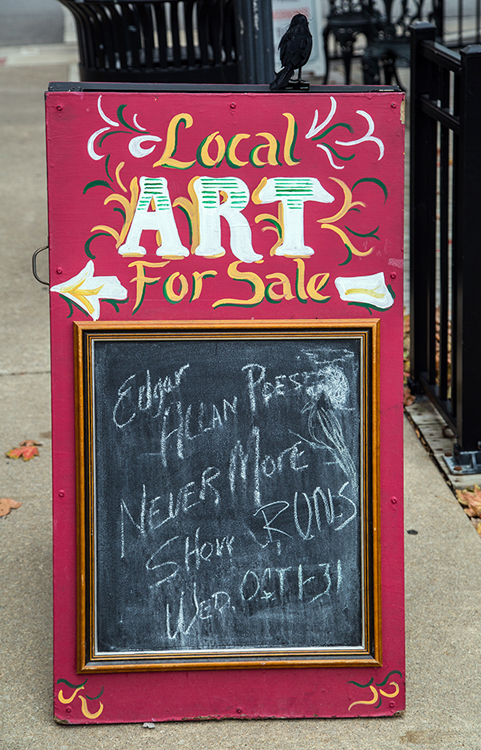 Local
ART
For Sale
Edgar
ALLAN POES
NEVER MORE
Show RUNS
WED. OCT 1-31